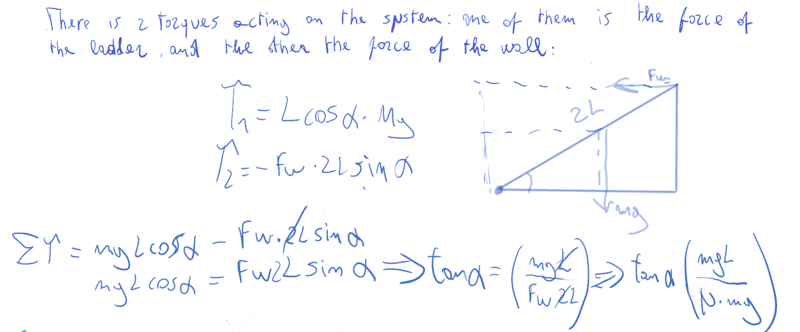 There is 2 torques acting on the system: one of them is the force of
the ladder, and the other the force of the wall:
τ₁ = L cos α · Mg
τ₂ = - Fw · 2L sin α
Fw
2L
mg
Στ = mg L cos α - Fw · 2L sin α
mg L cos α = Fw 2L sin α ⇒ tan α = (mgL / Fw 2L) ⇒ tan α (mgL / N · mg)